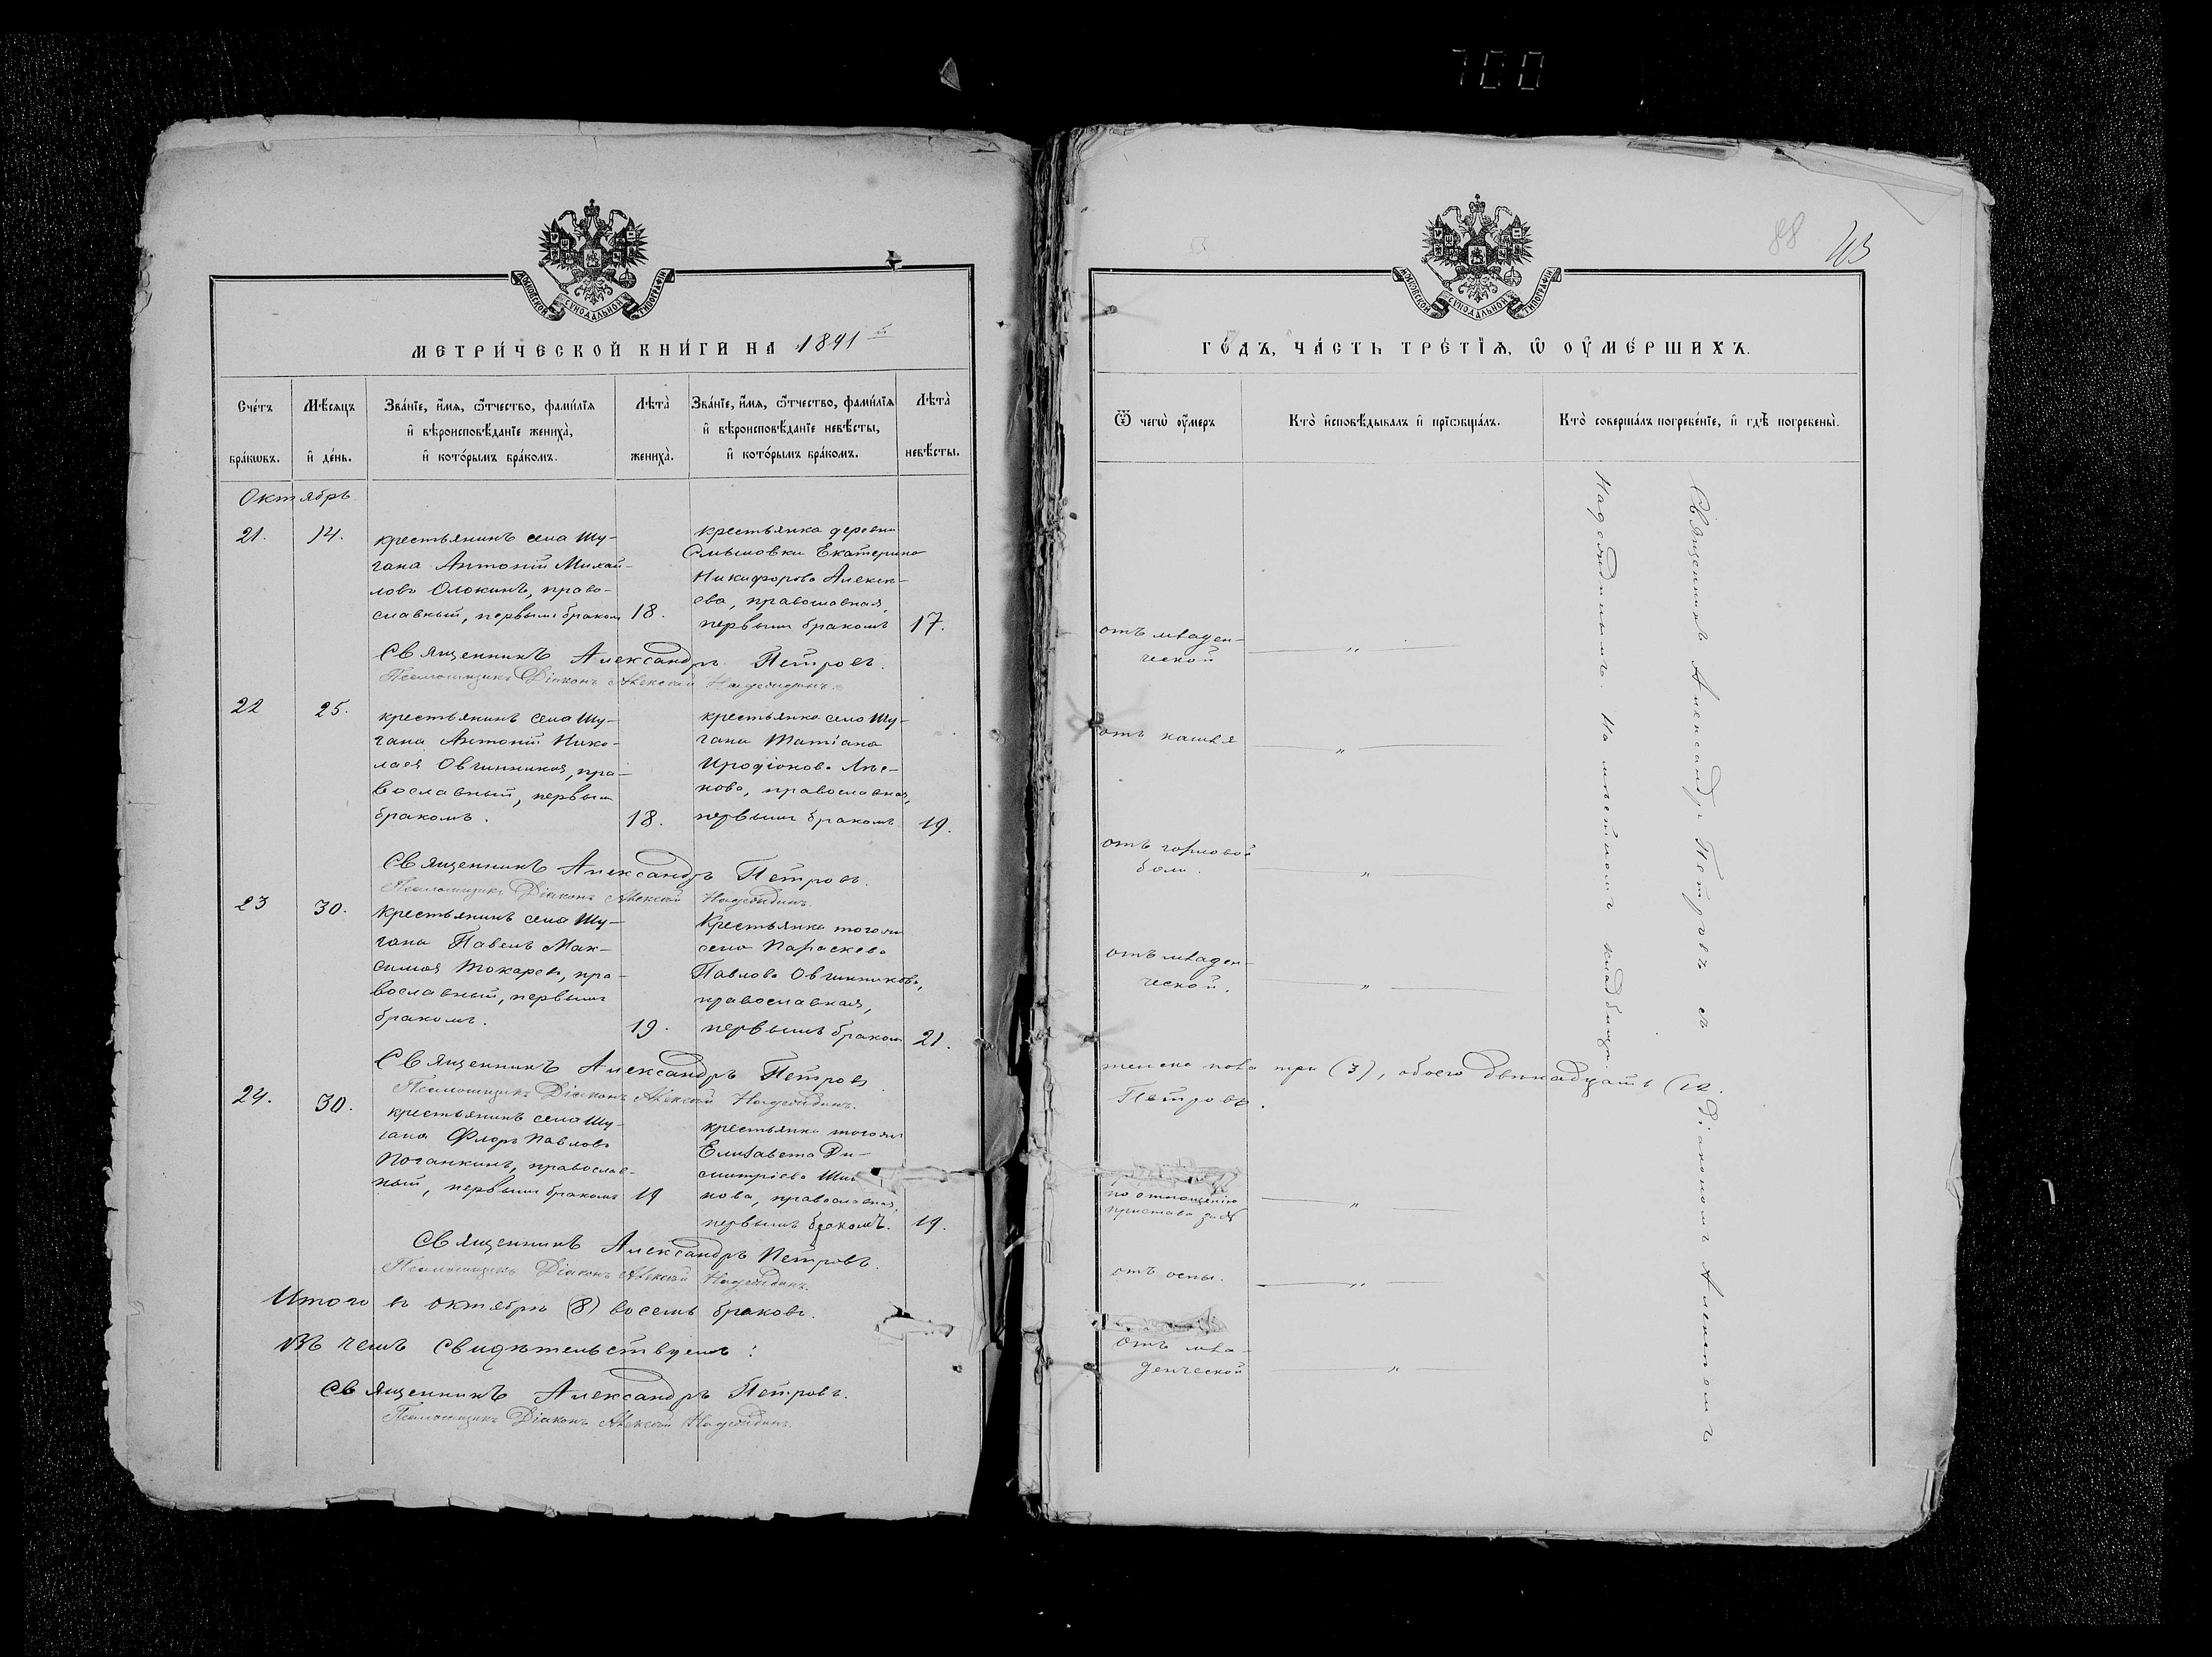 700
МОСКОВСКОЙ СУНОДАЛЬНОЙ ТИПОГРАФІИ
МЕТРИ́ЧЕСКОЙ КНИ́ГИ НА 1891 й
Сче́тъ бра́кωвъ.
Мѣ́сяцъ и҆ де́нь.
Зва́нїе, и҆́мя, ѻ҆́тчество, фами́лїя
и҆ вѣроисповѣ́данїе жениха̀,
и҆ кото́рымъ бра́комъ.
Лѣта̀ жениха̀.
Зва́нїе, и҆́мя, ѻ҆́тчество, фами́лїя
и҆ вѣроисповѣ́данїе невѣ́сты,
и҆ кото́рымъ бра́комъ.
Лѣта̀ невѣ́сты.
Октябрь
21.
14.
крестьянинъ села Шу-
гана Антоній Михай-
ловъ Олокинъ, право-
славный, первымъ бракомъ
18.
крестьянка деревни
Смысловки Екатерина
Никифорова Алексѣ-
ева, православная,
первымъ бракомъ
17.
Священникъ Александръ Петровъ.
Псаломщикъ Діаконъ Алексѣй Надеждинъ.
22
25.
крестьянинъ села Шу-
гана Антоній Нико-
лаевъ Овчинниковъ, пра-
вославный, первымъ
бракомъ.
18.
крестьянка села Шу-
гана Татіана
Иродіонова
православная,
первымъ бракомъ
19.
Священникъ Александръ Петровъ.
Псаломщикъ Діаконъ Алексѣй Надеждинъ.
23
30.
крестьянинъ села Шу-
гана Павелъ Мак-
симовъ Токаревъ, пра-
вославный, первымъ
бракомъ.
19.
Крестьянка того же
села Параскева
Павлова Овчинникова,
православная,
первымъ бракомъ
21.
Священникъ Александръ Петровъ
Псаломщикъ Діаконъ Алексѣй Надеждинъ.
24.
30.
крестьянинъ села Шу-
гана Флоръ Павловъ
Поганкинъ, православ-
ный, первымъ бракомъ
19
крестьянка того же
Елисавета Ди-
митріева
православная,
первымъ бракомъ.
19.
Священникъ Александръ Петровъ.
Псаломщикъ Діаконъ Алексѣй Надеждинъ.
Итого въ октябрѣ (8) восемь браковъ.
Въ чемъ свидѣтельствуемъ:
Священникъ Александръ Петровъ.
Псаломщикъ Діаконъ Алексѣй Надеждинъ.
88
МОСКОВСКОЙ СУНОДАЛЬНОЙ ТИПОГРАФІИ
ГО́ДЪ, ЧА́СТЬ ТРЕ́ТЇѦ, Ѽ ОУ҆МЕ́РШИХЪ.
Ѿ чегѡ̀ оу҆́меръ
Кто̀ и҆сповѣ́дывалъ и҆ прїѡбща́лъ.
Кто̀ соверша́лъ погребе́нїе, и҆ гдѣ̀ погребены̀.
отъ младен-
ческой
"
отъ кашля
"
отъ горловой
боли.
"
отъ младен-
ческой.
"
женска пола три (3), обоего двѣнадцать (12
Петровъ.
по отношенію
пристава
"
отъ оспы.
"
отъ мла-
денческой
"
Священникъ Александръ Петровъ съ Діакономъ Алексѣемъ
Надеждинымъ. На мѣстномъ кладбищѣ.